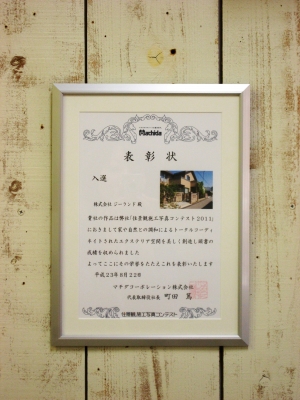 Machida
表彰状
入選
株式会社 ジーランド 殿
貴社の作品は弊社「住景観施工写真コンテスト2011」
におきまして家や自然との調和によるトータルコーディ
ネイトされたエクステリア空間を美しく創造し頭書の
成績を収められました
よってここにその栄誉をたたえこれを表彰いたします
平成23年8月22日
マチダコーポレーション株式会社
代表取締役社長 町田 篤
住景観施工写真コンテスト